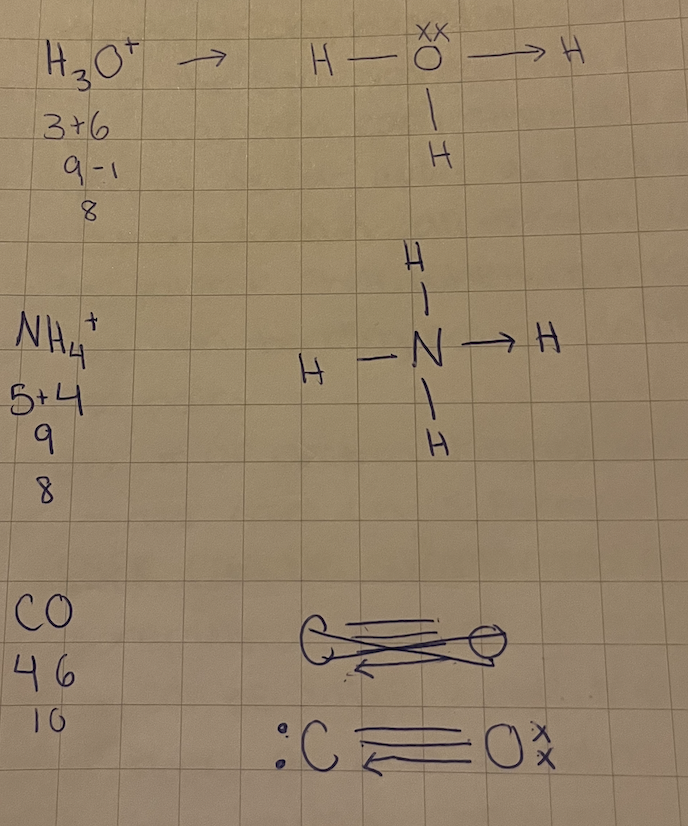 H₃O⁺ → H — O — → H
xx
|
H
3+6
9-1
8
H
|
NH₄⁺
H — N → H
5+4
|
9
H
8
CO
C O
4 6
10
: C O xx